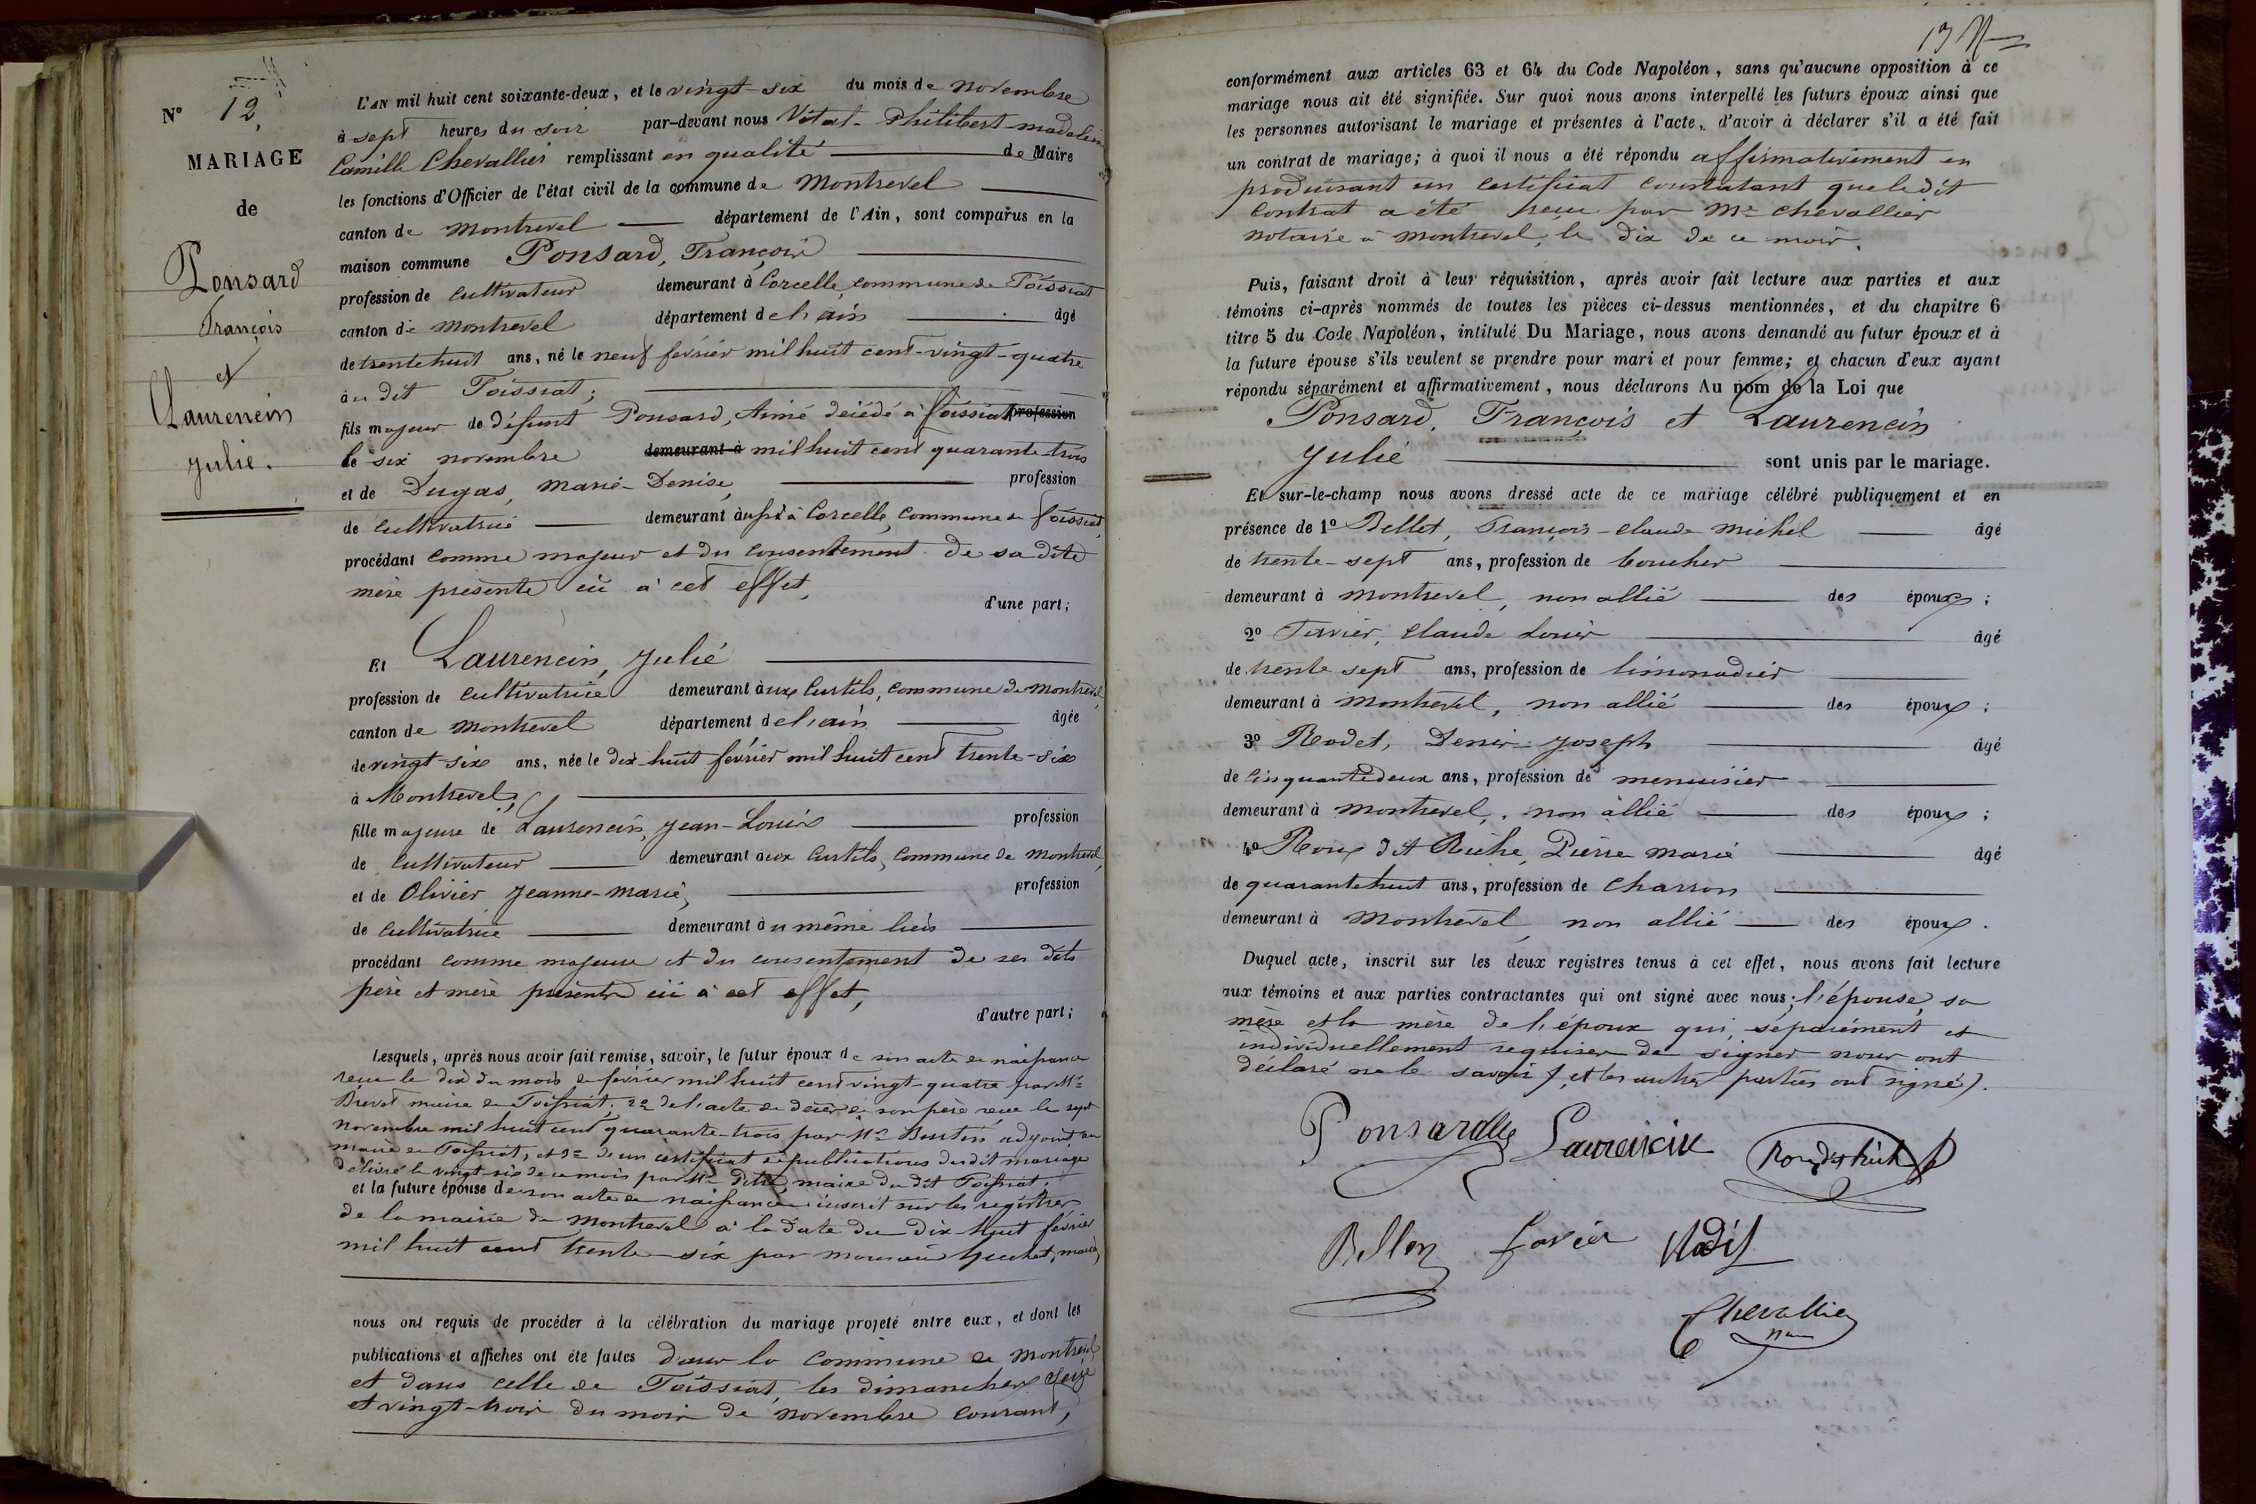 N° 12
MARIAGE
de
Ponsard
François
et
Laurencin
Julie.
L'AN mil huit cent soixante-deux, et le vingt-six du mois de novembre
à sept heures du soir par-devant nous Vital-Philibert-madelein
Camille Chevallier remplissant en qualité de Maire
les fonctions d'Officier de l'état civil de la commune de Montrevel
canton de Montrevel département de l'Ain, sont comparus en la
maison commune Ponsard, François
profession de cultivateur demeurant à Corcelle, commune de Foissiat
canton de Montrevel département de l'ain âgé
de trente huit ans, né le neuf février mil huit cent-vingt-quatre
au dit Foissiat;
fils majeur de défunt Ponsard, Aimé décédé à foissiat profession
le six novembre demeurant à mil huit cent quarante trois
et de Dugas, Marie-Denise, profession
de cultivatrice demeurant aussi à Corcelle, commune de foissiat,
procédant comme majeur et du consentement de sa dite
mère présente ici à cet effet, d'une part;
Et Laurencin, Julie
profession de cultivatrice demeurant aux Curtils, commune de Montrevel,
canton de Montrevel département de l'ain âgée
de vingt-six ans, née le dix-huit février mil huit cent trente-six
à Montrevel;
fille majeure de Laurencin, Jean-Louis profession
de cultivateur demeurant aux Curtils, commune de Montrevel,
et de Olivier Jeanne-Marie, profession
de cultivatrice demeurant au même lieu
procédant comme majeure et du consentement de ses dits
père et mère présents ici à cet effet,
d'autre part;
Lesquels, après nous avoir fait remise, savoir, le futur époux de son acte de naissance
reçu le dix du mois de février mil huit cent vingt-quatre par Mr
maire de Foissiat; 2° de l'acte de décès de son père reçu le sept
novembre mil huit cent quarante-trois par Mr adjoint au
maire de Foissiat, et 3° de un certificat de publications du dit mariage
délivré le vingt six de ce mois par Mr maire du dit Foissiat.
et la future épouse de son acte de naissance inscrit sur les registres
de la mairie de Montrevel à la date du dix-huit février
mil huit cent trente-six par monsieur maire,
nous ont requis de procéder à la célébration du mariage projeté entre eux, et dont les
publications et affiches ont été faites dans la commune de Montrevel
et dans celle de Foissiat, les dimanches seize
et vingt-trois du mois de novembre courant,
13
conformément aux articles 63 et 64 du Code Napoléon, sans qu'aucune opposition à ce
mariage nous ait été signifiée. Sur quoi nous avons interpellé les futurs époux ainsi que
les personnes autorisant le mariage et présentes à l'acte, d'avoir à déclarer s'il a été fait
un contrat de mariage; à quoi il nous a été répondu affirmativement en
produisant un certificat constatant que le dit
contrat a été reçu par Me chevallier
notaire à Montrevel, le dix de ce mois.
Puis, faisant droit à leur réquisition, après avoir fait lecture aux parties et aux
témoins ci-après nommés de toutes les pièces ci-dessus mentionnées, et du chapitre 6
titre 5 du Code Napoléon, intitulé Du Mariage, nous avons demandé au futur époux et à
la future épouse s'ils veulent se prendre pour mari et pour femme; et chacun d'eux ayant
répondu séparément et affirmativement, nous déclarons Au nom de la Loi que
Ponsard, François et Laurencin
Julie sont unis par le mariage.
Et sur-le-champ nous avons dressé acte de ce mariage célébré publiquement et en
présence de 1° Bellet, François-Claude Michel âgé
de trente-sept ans, profession de boucher
demeurant à Montrevel, non allié des époux;
2° Favier, Claude Louis âgé
de trente sept ans, profession de limonadier
demeurant à Montrevel, non allié des époux;
3° Rodet, Denis-Joseph âgé
de cinquante deux ans, profession de menuisier
demeurant à Montrevel, non allié des époux;
4° Roux dit Riche, Pierre Marie âgé
de quarante huit ans, profession de Charron
demeurant à Montrevel, non allié des époux.
Duquel acte, inscrit sur les deux registres tenus à cet effet, nous avons fait lecture
aux témoins et aux parties contractantes qui ont signé avec nous; l'épouse, sa
mère et la mère de l'époux qui, séparément et
individuellement requises de signer nous ont
déclaré ne le savoir, (et les autres parties ont signé).
Ponsard Laurencin Roux dit Riche
Bellet favier Rodet
Chevallier